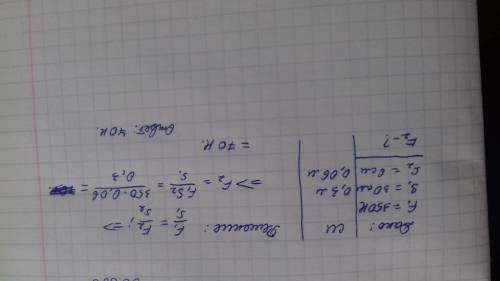 Дано: СИ Решение:
F₁ = 350 Н
S₁ = 30 см 0,3 м
S₂ = 6 см 0,06 м
F₂ - ?
F₁/S₁ = F₂/S₂ ; =>
=> F₂ = F₁S₂/S₁ = 350·0,06/0,3 =
= 70 Н.
Ответ: 70 Н.